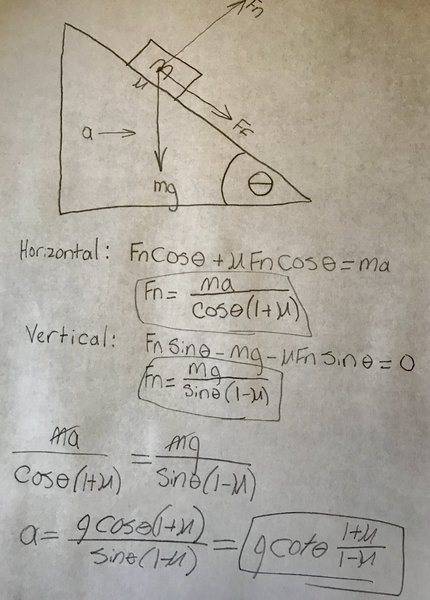 Fn
m
μ
Ff
a →
mg
θ
Horizontal: Fn cosθ + μFn cosθ = ma
Fn = ma / cosθ(1+μ)
Vertical: Fn sinθ - mg - μFn sinθ = 0
Fn = mg / sinθ(1-μ)
ma / cosθ(1+μ) = mg / sinθ(1-μ)
a = g cosθ(1+μ) / sinθ(1-μ) = g cotθ 1+μ / 1-μ